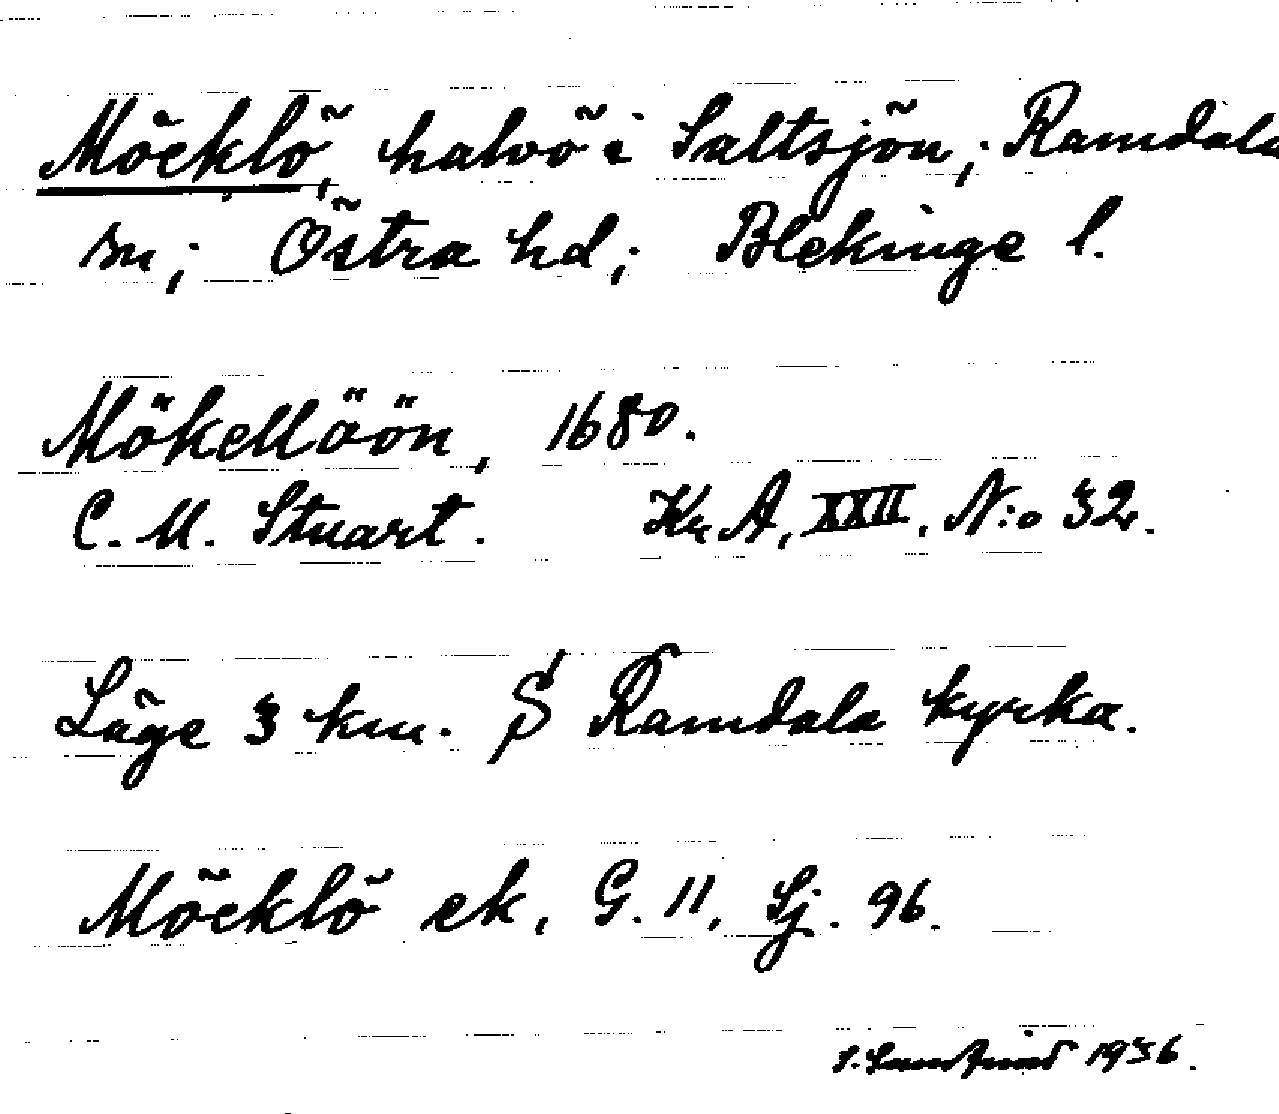 Möcklö, halvö i Saltsjön; Ramdala
sn; Östra hd; Blekinge l.
Mökellöön, 1680.
C. M. Stuart. Kr. A, XXII, N:o 32.
Läge 3 km. S Ramdala kyrka.
Möcklö ek, G. 11, Sj. 96.
S. 1956.